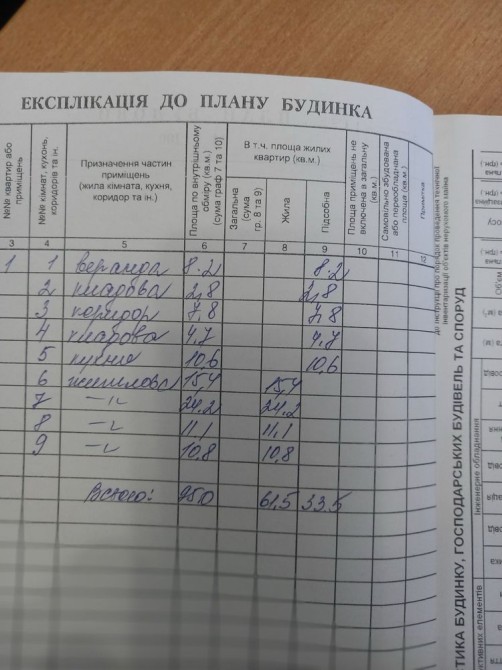 ЕКСПЛІКАЦІЯ ДО ПЛАНУ БУДИНКА
№№ квартир або приміщень
№№ кімнат, кухонь, коридорів та ін.
Призначення частин приміщень (жила кімната, кухня, коридор та ін.)
Площа по внутрішньому обміру (кв.м.) (сума граф 7 та 10)
В т.ч. площа жилих квартир (кв.м.)
Загальна (сума гр. 8 та 9)
Жила
Підсобна
Площа приміщень не включена в загальну (кв.м.)
Самовільно збудована або переобладнана площа (кв.м.)
Примітка
3 4 5 6 7 8 9 10 11 12
1 1 веранда 8.2 8.2
2 кладова 2,8 2,8
3 коридор 7,8 7,8
4 кладова 4,7 4,7
5 кухня 10,6 10,6
6 15,4 15,4
7 -"- 24,2 24,2
8 -"- 11,1 11,1
9 -"- 10,8 10,8
Всього: 95.0 61,5 33.5
до Інструкції про порядок проведення технічної
інвентаризації об'єктів нерухомого майна
ТИКА БУДИНКУ, ГОСПОДАРСЬКИХ БУДІВЕЛЬ ТА СПОРУД
Інженерне обладнання